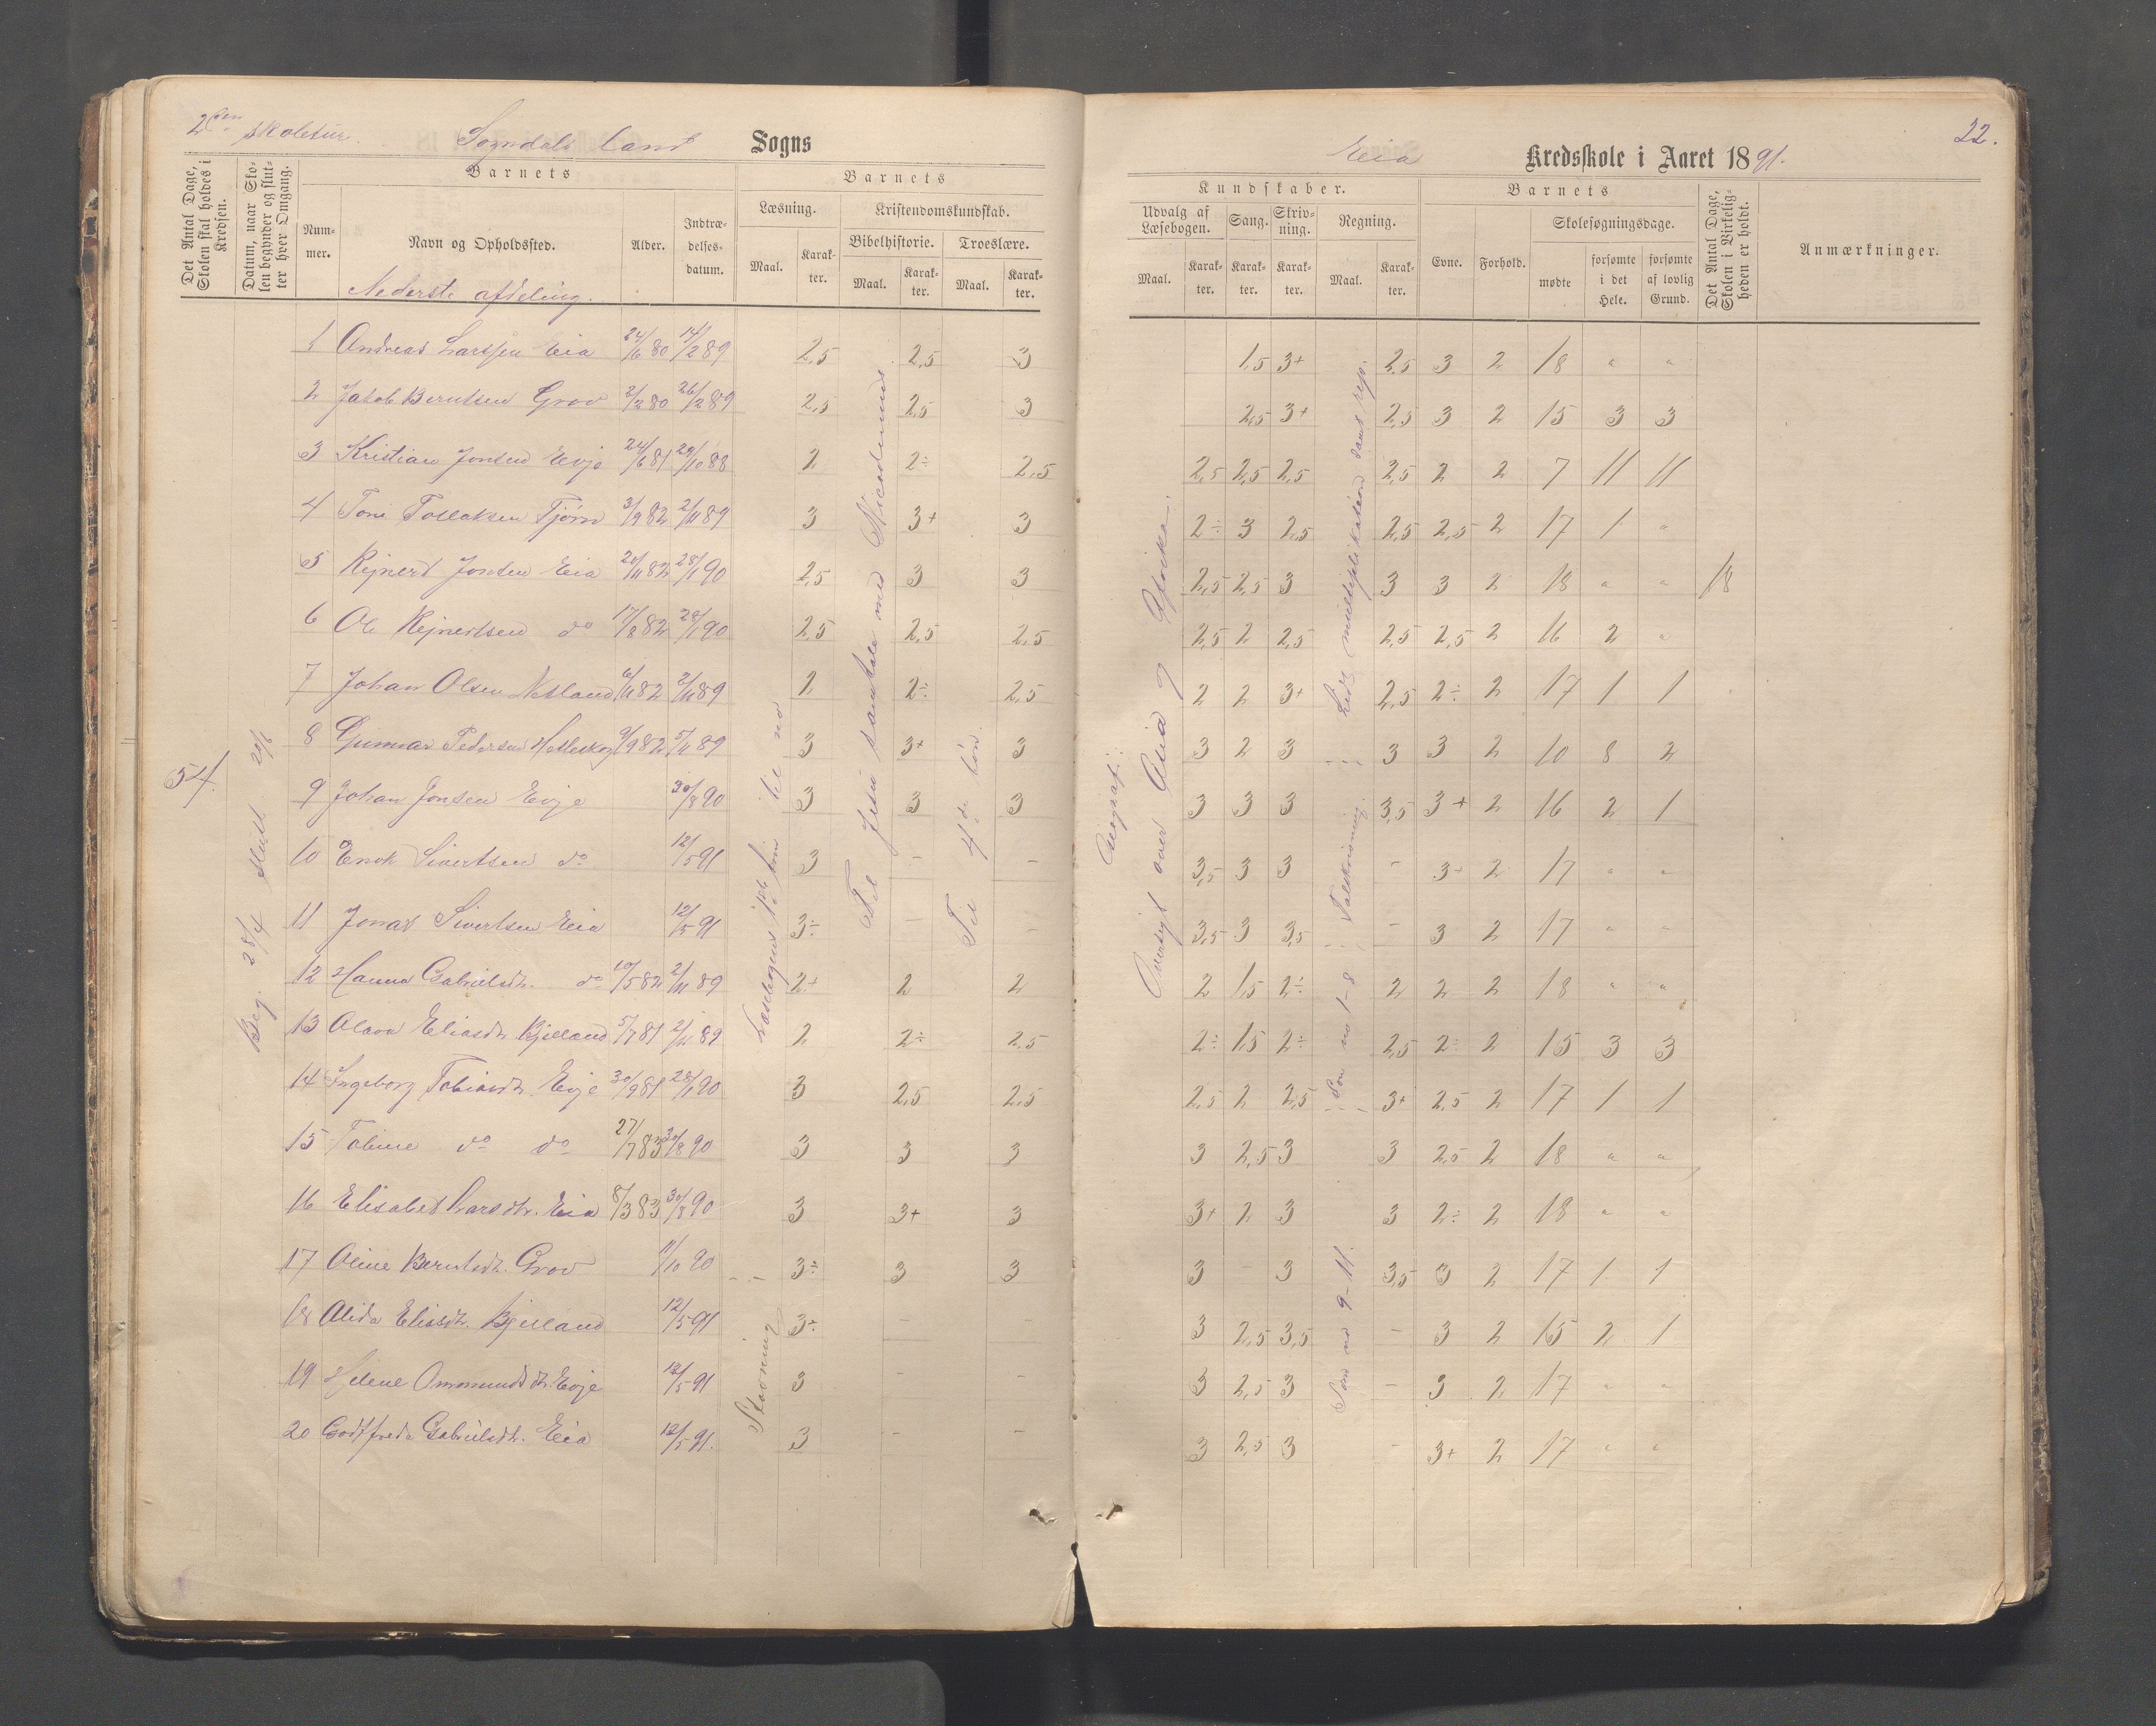 2den skoletur. Sogndals land Sogns
Eia Kredsskole i Aaret 1891.
22.
Det Antal Dage, Skolen skal holdes i Kredsen.
Datum, naar Skolen begynder og slutter hver Omgang.
Barnets
Nummer.
Navn og Opholdssted.
Alder.
Indtrædelsesdatum.
Barnets
Læsning.
Maal.
Karakter.
Kristendomskundskab.
Bibelhistorie.
Maal.
Karakter.
Troeslære.
Maal.
Karakter.
Kundskaber.
Udvalg af Læsebogen.
Maal.
Karakter.
Sang.
Karakter.
Skrivning.
Karakter.
Regning.
Maal.
Karakter.
Barnets
Evne.
Forhold.
Skolesøgningsdage.
mødte
forsømte i det Hele.
forsømte af lovlig Grund.
Det Antal Dage, Skolen i Virkeligheden er holdt.
Anmærkninger.
Nederste afdeling.
1 Andreas Larssen Eia 24/6 80 14/2 89 2,5 2,5 3 1,5 3+ 2,5 3 2 18 " "
2 Jakob Berntsen Grov 2/2 80 26/2 89 2,5 2,5 3 2,5 3+ 2,5 3 2 15 3 3
3 Kristian Jonsen Evje 24/6 81 29/10 88 2 2÷ 2,5 2,5 2,5 2,5 2,5 2 2 7 11 11
4 Tone Tollaksen Tjørn 3/9 82 2/11 89 3 3+ 3 2÷ 3 2,5 2,5 2,5 2 17 1 "
5 Rejnert Jonsen Eia 20/11 82 28/1 90 2,5 3 3 2,5 2,5 3 3 3 2 18 " " 18
6 Ole Rejnertsen do 17/8 82 28/1 90 2,5 2,5 2,5 2,5 2 2,5 2,5 2,5 2 16 2 "
7 Johan Olsen Netland 6/11 82 2/11 89 2 2÷ 2,5 2 2 3+ 2,5 2÷ 2 17 1 1
8 Gunnar Pedersen Hetleskog 9/9 82 5/11 89 3 3+ 3 3 2 3 3 3 2 10 8 2
9 Johan Jonsen Evje 30/8 90 3 3 3 3 3 3 3,5 3+ 2 16 2 1
10 Enok Sivertsen do 12/5 91 3 - - 3,5 3 3 - 3+ 2 17 " "
11 Jonas Sivertsen Eia 12/5 91 3÷ - - 3,5 3 3,5 - 3 2 17 " "
12 Hanna Gabrielsdt. do 10/5 82 2/11 89 2+ 2 2 2 1,5 2÷ 2 2 2 18 " "
13 Olava Eliasdt. Bjelland 5/7 81 2/11 89 2 2÷ 2,5 2÷ 1,5 2÷ 2,5 2÷ 2 15 3 3
14 Ingeborg Tobiasdt. Evje 30/9 81 28/1 90 3 2,5 2,5 2,5 2 2,5 3+ 2,5 2 17 1 1
15 Toline do do 27/7 83 30/8 90 3 3 3 3 2,5 3 3 2,5 2 18 " "
16 Elisabet Larsdtr. Eia 8/3 83 30/8 90 3 3+ 3 3+ 2 3 3 2÷ 2 18 " "
17 Oline Berntsdt. Grov 11/10 90 3÷ 3 3 3 - 3 3,5 3 2 17 1 1
18 Alida Eliasdt. Bjelland 12/5 91 3÷ - - 3 2,5 3,5 - 3 2 15 2 1
19 Helene Ommundsdt. Evje 12/5 91 3 - - 3 2,5 3 - 3 2 17 " "
20 Godtfreda Gabrielsdt. Eia 12/5 91. 3 - - 3 2,5 3 - 3+ 2 17 " "
54.
Beg. 28/4 slutt 20/6
Stavning
Til Jesu samtale med Nicodemus
Til 4de bøn.
Geografi:
Oversigt over Asia og Afrika.
Lidt multiplikation samt rep.
Talskrivning.
Som no 1-8
Som no 9-11.